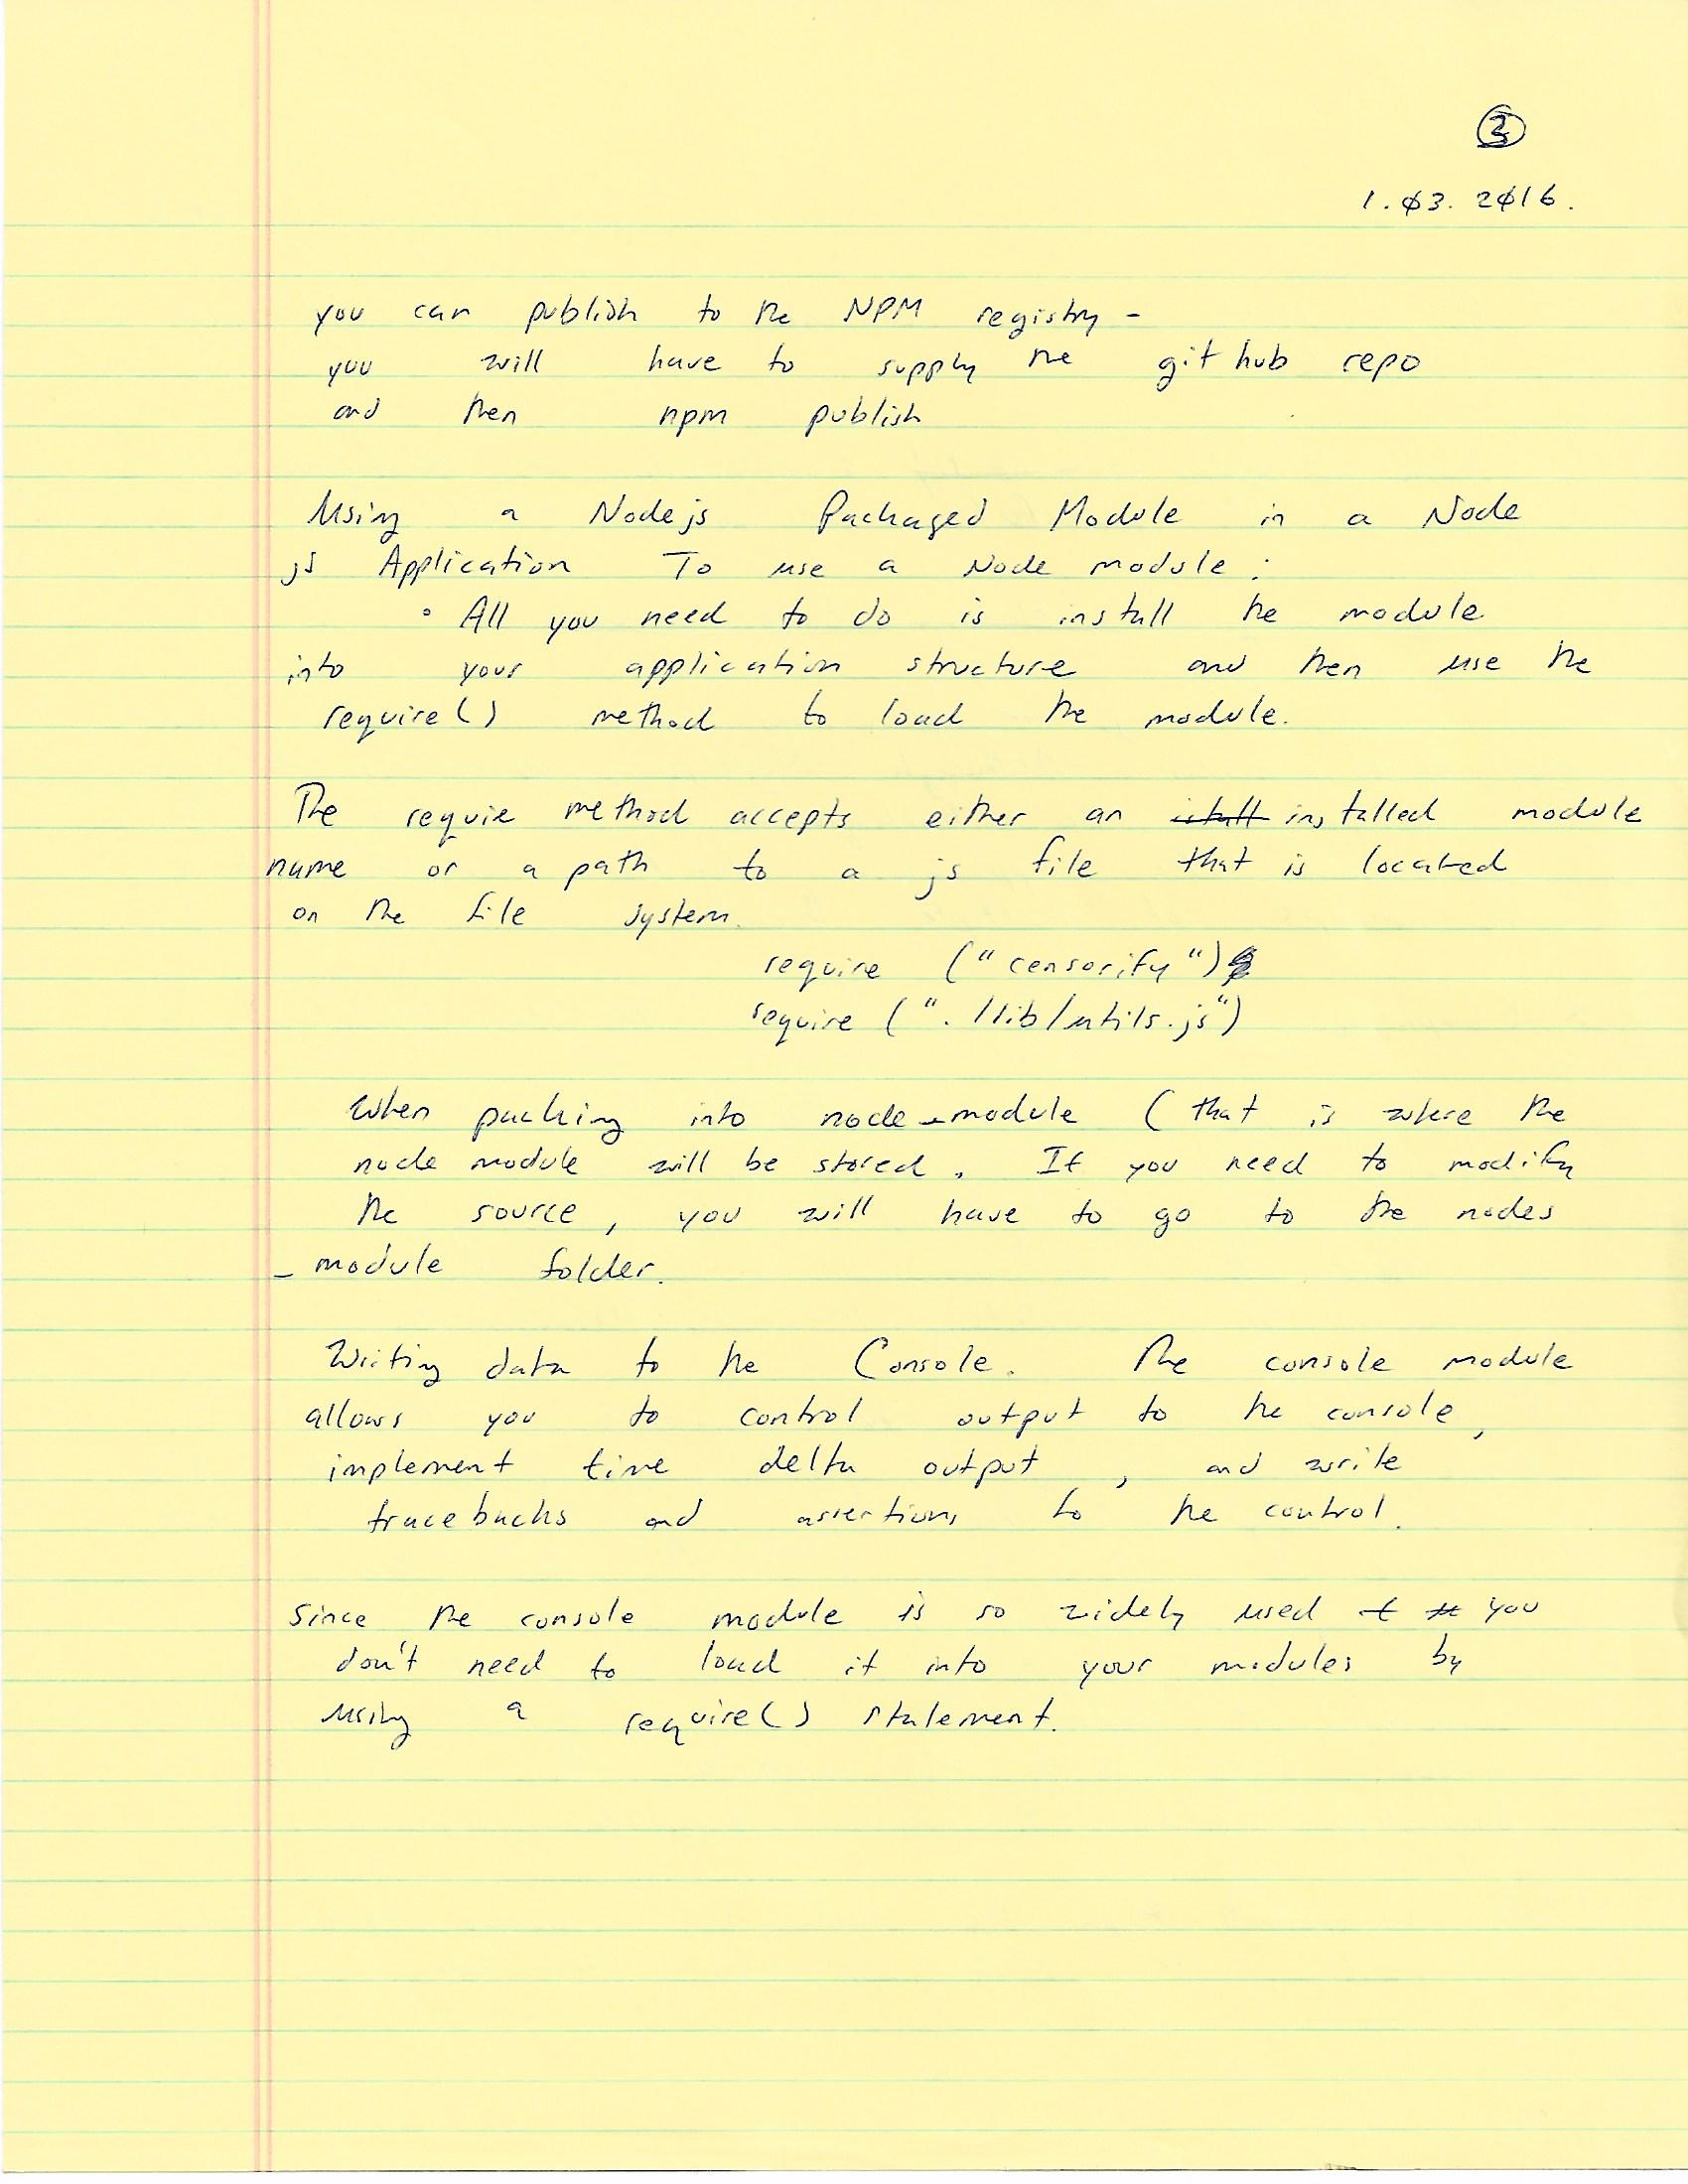 1.03.2016.
you can publish to the NPM registry -
you will have to supply the github repo
and then npm publish
Using a Nodejs Packaged Module in a Node
js Application To use a Node module:
• All you need to do is install the module
into your application structure and then use the
require() method to load the module.
The requie method accepts either an installed module
name or a path to a js file that is located
on the file system.
require ("censorify")
require ("./lib/utils.js")
When packing into node_module (that is where the
node module will be stored. If you need to modify
the source, you will have to go to the nodes
_module folder.
Writing data to the Console. The console module
allows you to control output to the console,
implement time delta output, and write
tracebacks and assertions to the control.
Since the console module is so widely used you
don't need to load it into your modules by
using a require() statement.